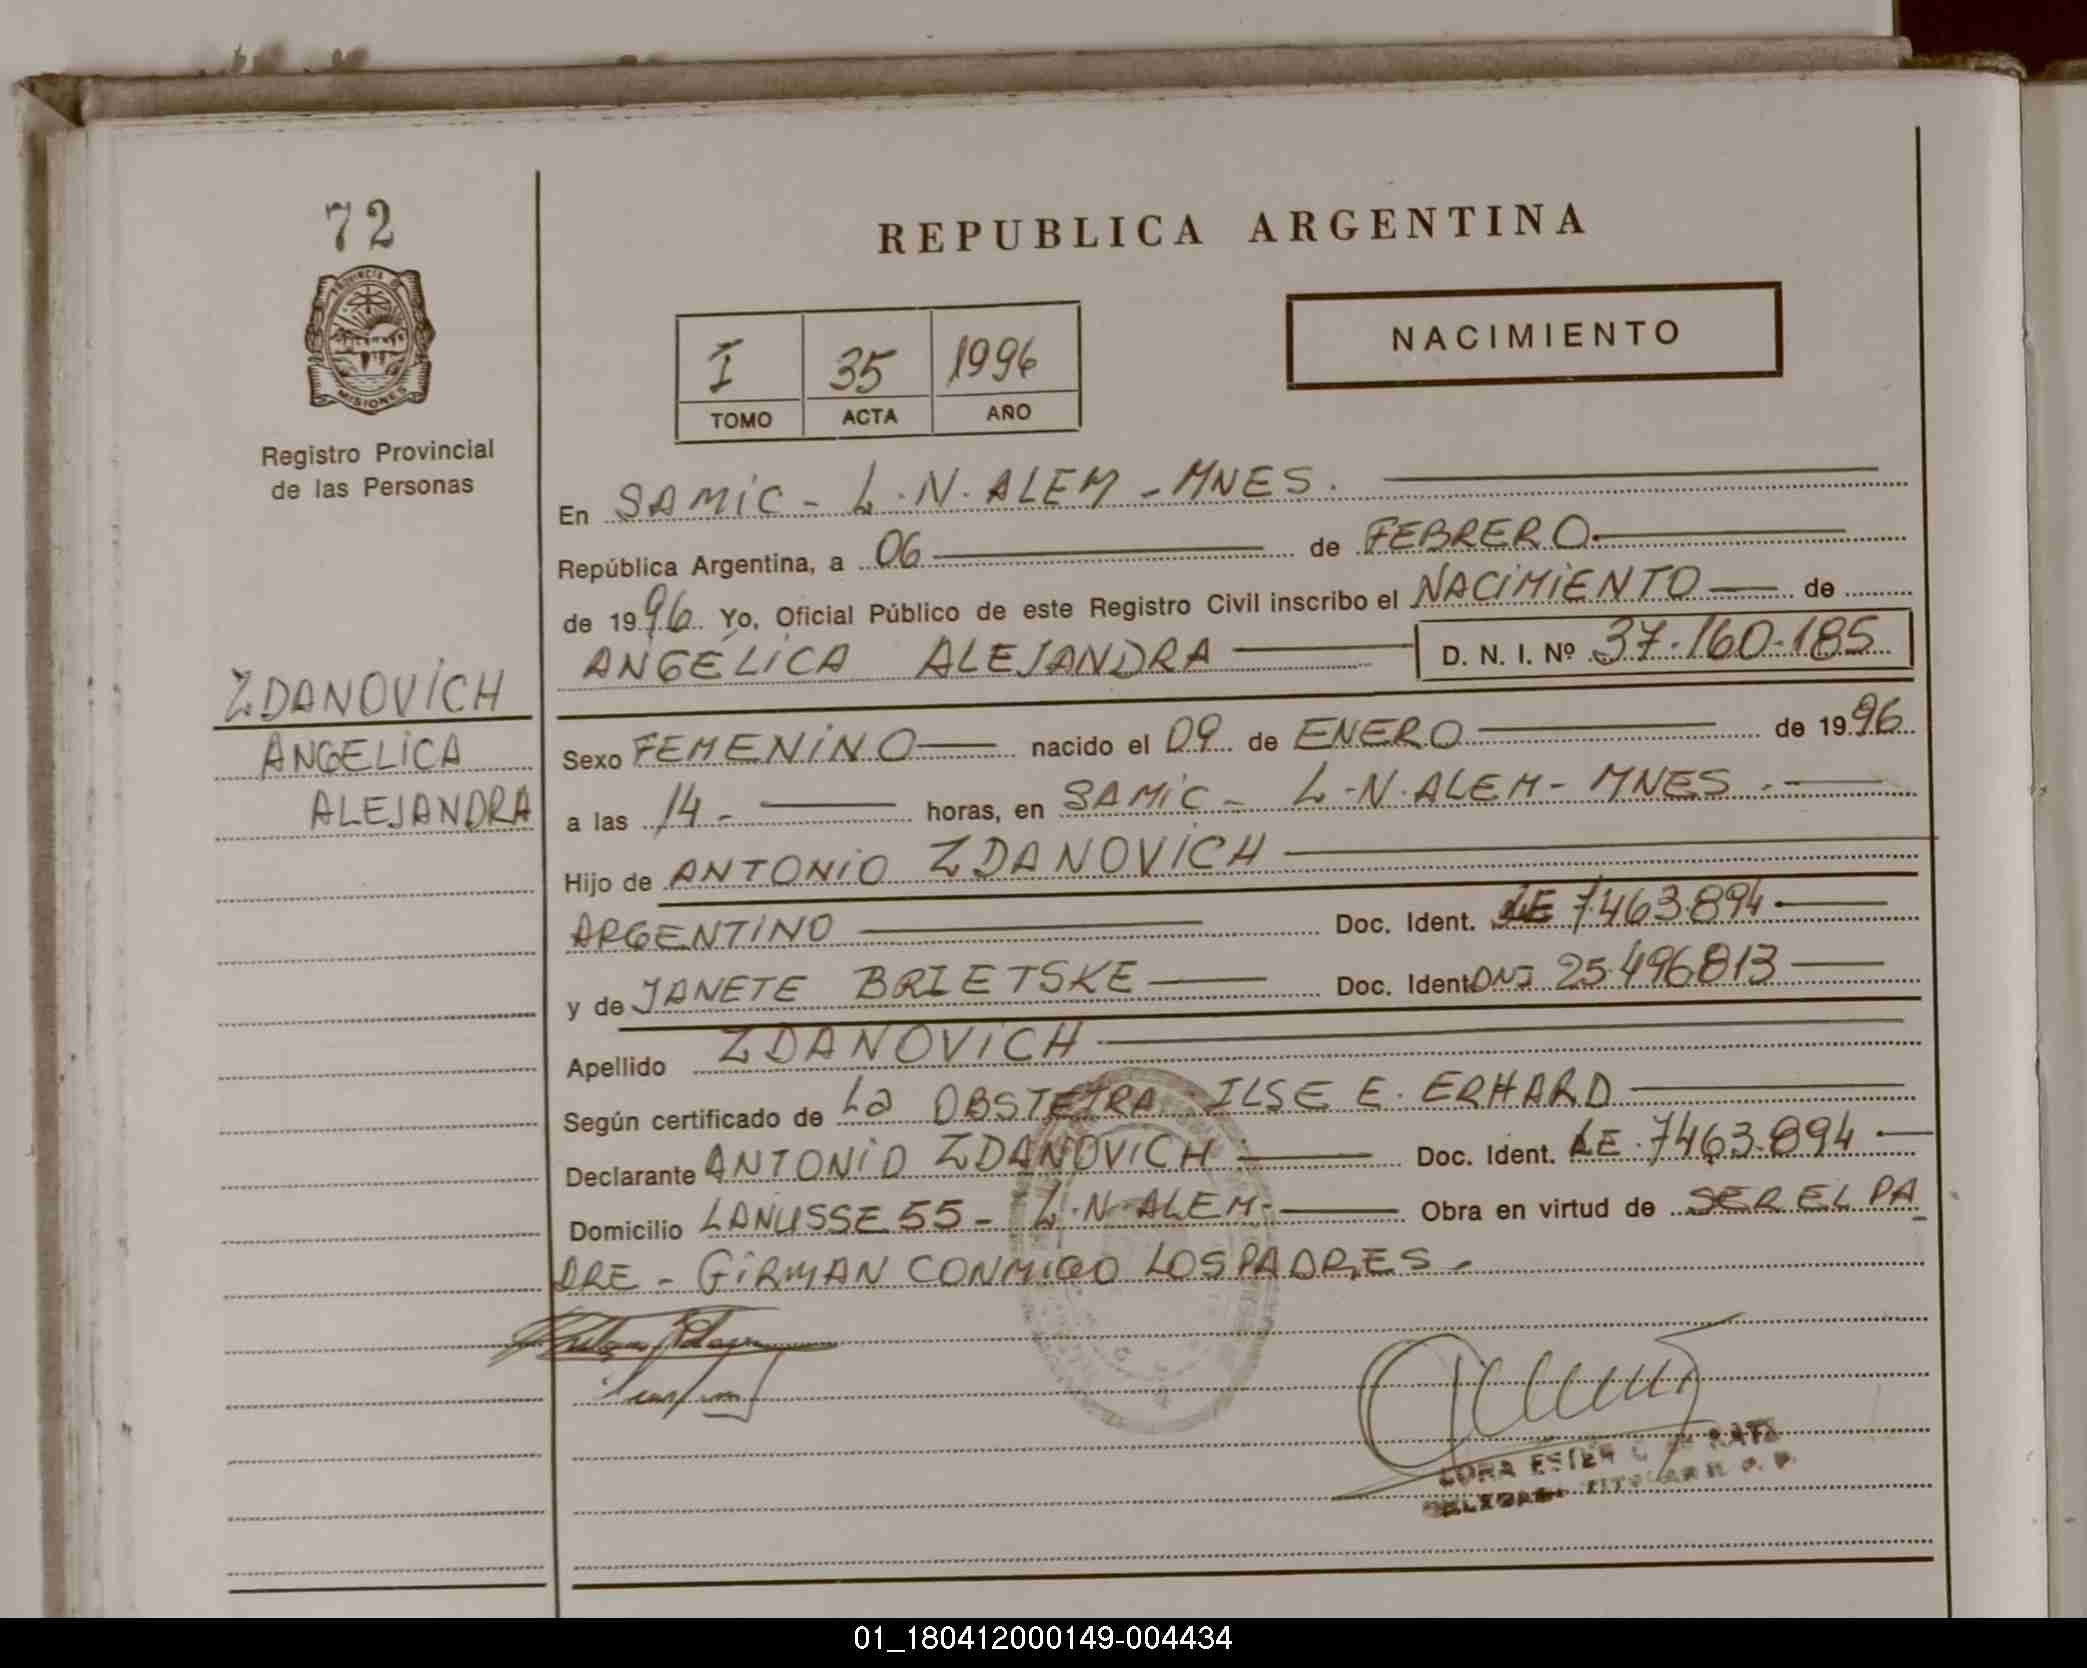 72
PROVINCIA DE
MISIONES
Registro Provincial
de las Personas
ZDANOVICH
ANGELICA
ALEJANDRA
REPUBLICA ARGENTINA
I 35 1996
TOMO ACTA AÑO
NACIMIENTO
En SAMIC - L.N.ALEM - MNES.
República Argentina, a 06 de FEBRERO.
de 1996. Yo, Oficial Público de este Registro Civil inscribo el NACIMIENTO de
ANGELICA ALEJANDRA D. N. I. Nº 37.160.185
Sexo FEMENINO nacido el 09 de ENERO de 1996
a las 14 - horas, en SAMIC - L.N.ALEM - MNES.-
Hijo de ANTONIO ZDANOVICH
ARGENTINO Doc. Ident. LE 7.463.894
y de JANETE BRIETSKE Doc. Ident. DNI 25.496813
Apellido ZDANOVICH
Según certificado de La OBSTETRA ILSE E. ERHARD
Declarante ANTONIO ZDANOVICH Doc. Ident. LE.7463.894
Domicilio LANUSSE 55 - L.N.ALEM- Obra en virtud de SER EL PA
DRE - GIRMAN CONMIGO LOS PADRES -
ESTER
01_180412000149-004434